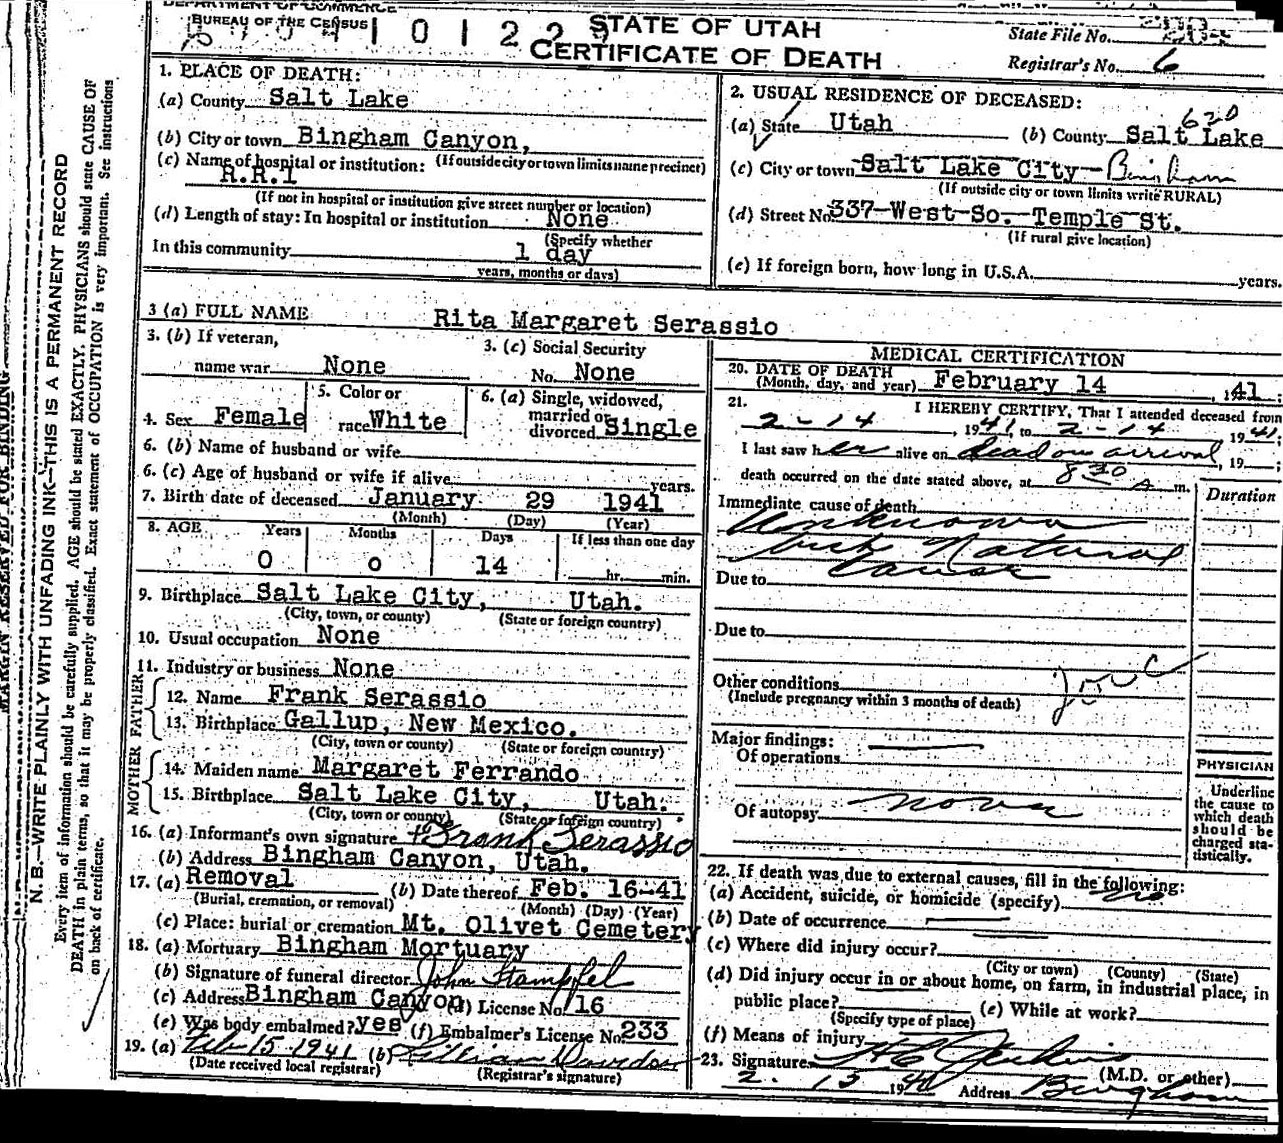 DEPARTMENT OF COMMERCE
BUREAU OF THE CENSUS
1 0 1 2 2
STATE OF UTAH
CERTIFICATE OF DEATH
State File No.
Registrar's No. 6
MARGIN RESERVED FOR BINDING
N. B.—WRITE PLAINLY WITH UNFADING INK—THIS IS A PERMANENT RECORD
Every item of information should be carefully supplied. AGE should be stated EXACTLY. PHYSICIANS should state CAUSE OF
DEATH in plain terms, so that it may be properly classified. Exact statement of OCCUPATION is very important. See instructions
on back of certificate.
1. PLACE OF DEATH:
(a) County Salt Lake
(b) City or town Bingham Canyon,
(c) Name of hospital or institution: (If outside city or town limits name precinct)
R.R.1
(If not in hospital or institution give street number or location)
(d) Length of stay: In hospital or institution None
(Specify whether
In this community 1 day
years, months or days)
2. USUAL RESIDENCE OF DECEASED:
620
(a) State Utah (b) County Salt Lake
(c) City or town Salt Lake City - Bingham
(If outside city or town limits write RURAL)
(d) Street No. 337 West So. Temple St.
(If rural give location)
(e) If foreign born, how long in U.S.A. years.
3 (a) FULL NAME Rita Margaret Serassio
3. (b) If veteran, name war None
3. (c) Social Security No. None
4. Sex Female
5. Color or race White
6. (a) Single, widowed, married or divorced Single
6. (b) Name of husband or wife
6. (c) Age of husband or wife if alive years.
7. Birth date of deceased January 29 1941
(Month) (Day) (Year)
8. AGE Years Months Days If less than one day
0 0 14 hr. min.
9. Birthplace Salt Lake City, Utah.
(City, town, or county) (State or foreign country)
10. Usual occupation None
11. Industry or business None
FATHER
12. Name Frank Serassio
13. Birthplace Gallup, New Mexico.
(City, town or county) (State or foreign country)
MOTHER
14. Maiden name Margaret Ferrando
15. Birthplace Salt Lake City, Utah.
(City, town or county) (State or foreign country)
16. (a) Informant's own signature Frank Serassio
(b) Address Bingham Canyon, Utah.
17. (a) Removal (b) Date thereof Feb. 16-41
(Burial, cremation, or removal) (Month) (Day) (Year)
(c) Place: burial or cremation Mt. Olivet Cemetery
18. (a) Mortuary Bingham Mortuary
(b) Signature of funeral director John Stampfel
(c) Address Bingham Canyon (d) License No. 116
(e) Was body embalmed? yes (f) Embalmer's License No. 233
19. (a) Feb 15-1941 (b) Lillian Davidson
(Date received local registrar) (Registrar's signature)
MEDICAL CERTIFICATION
20. DATE OF DEATH
(Month, day, and year) February 14, 1941;
21. I HEREBY CERTIFY, That I attended deceased from
2-14, 1941, to 2-14 1941;
I last saw her alive on dead on arrival, 19 ;
death occurred on the date stated above, at 8 30 A m.
Duration
Immediate cause of death
Unknown
but Natural
Due to cause
Due to
Other conditions
(Include pregnancy within 3 months of death)
Major findings:
Of operations
Of autopsy none
PHYSICIAN
Underline
the cause to
which death
should be
charged sta-
tistically.
22. If death was due to external causes, fill in the following:
(a) Accident, suicide, or homicide (specify) no
(b) Date of occurrence
(c) Where did injury occur?
(City or town) (County) (State)
(d) Did injury occur in or about home, on farm, in industrial place, in
public place? (e) While at work?
(Specify type of place)
(f) Means of injury
23. Signature H C Jenkins
(M.D. or other)
2. 15 1941 Address Bingham